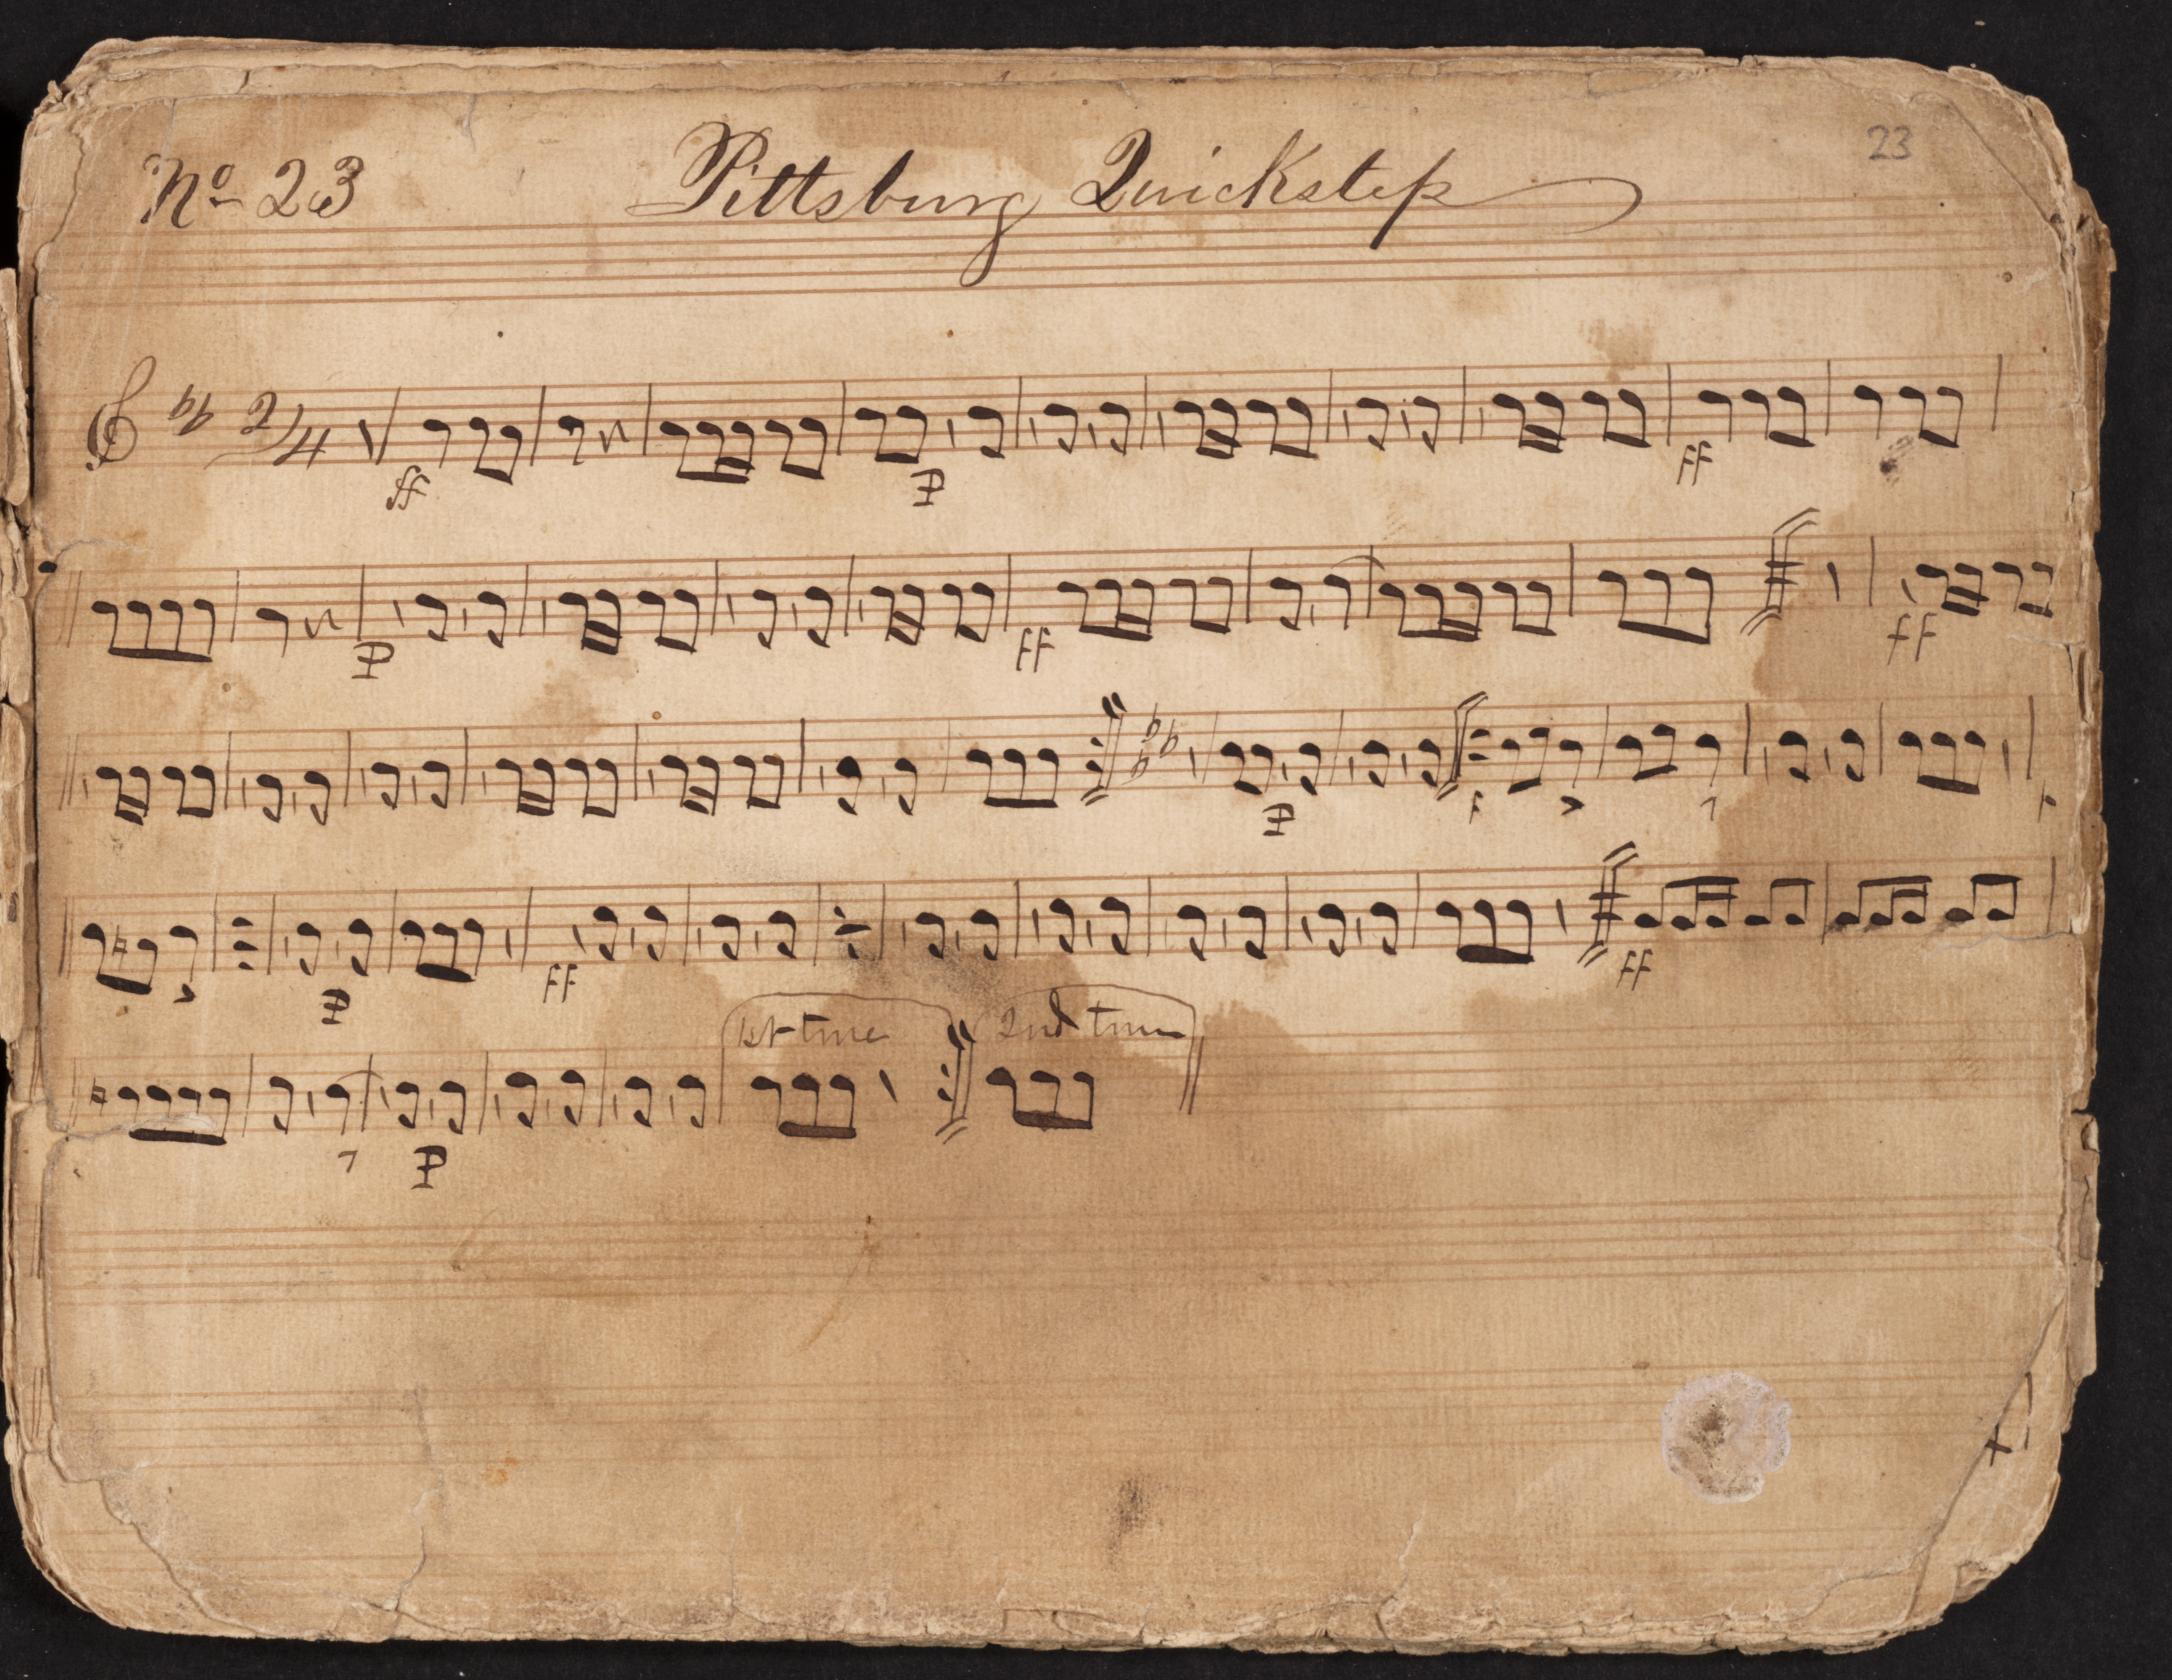 No 23 Pittsburg Quickstep 23
2/4
ff P ff
P ff ff
P F
P ff ff
1st time 2nd time
P